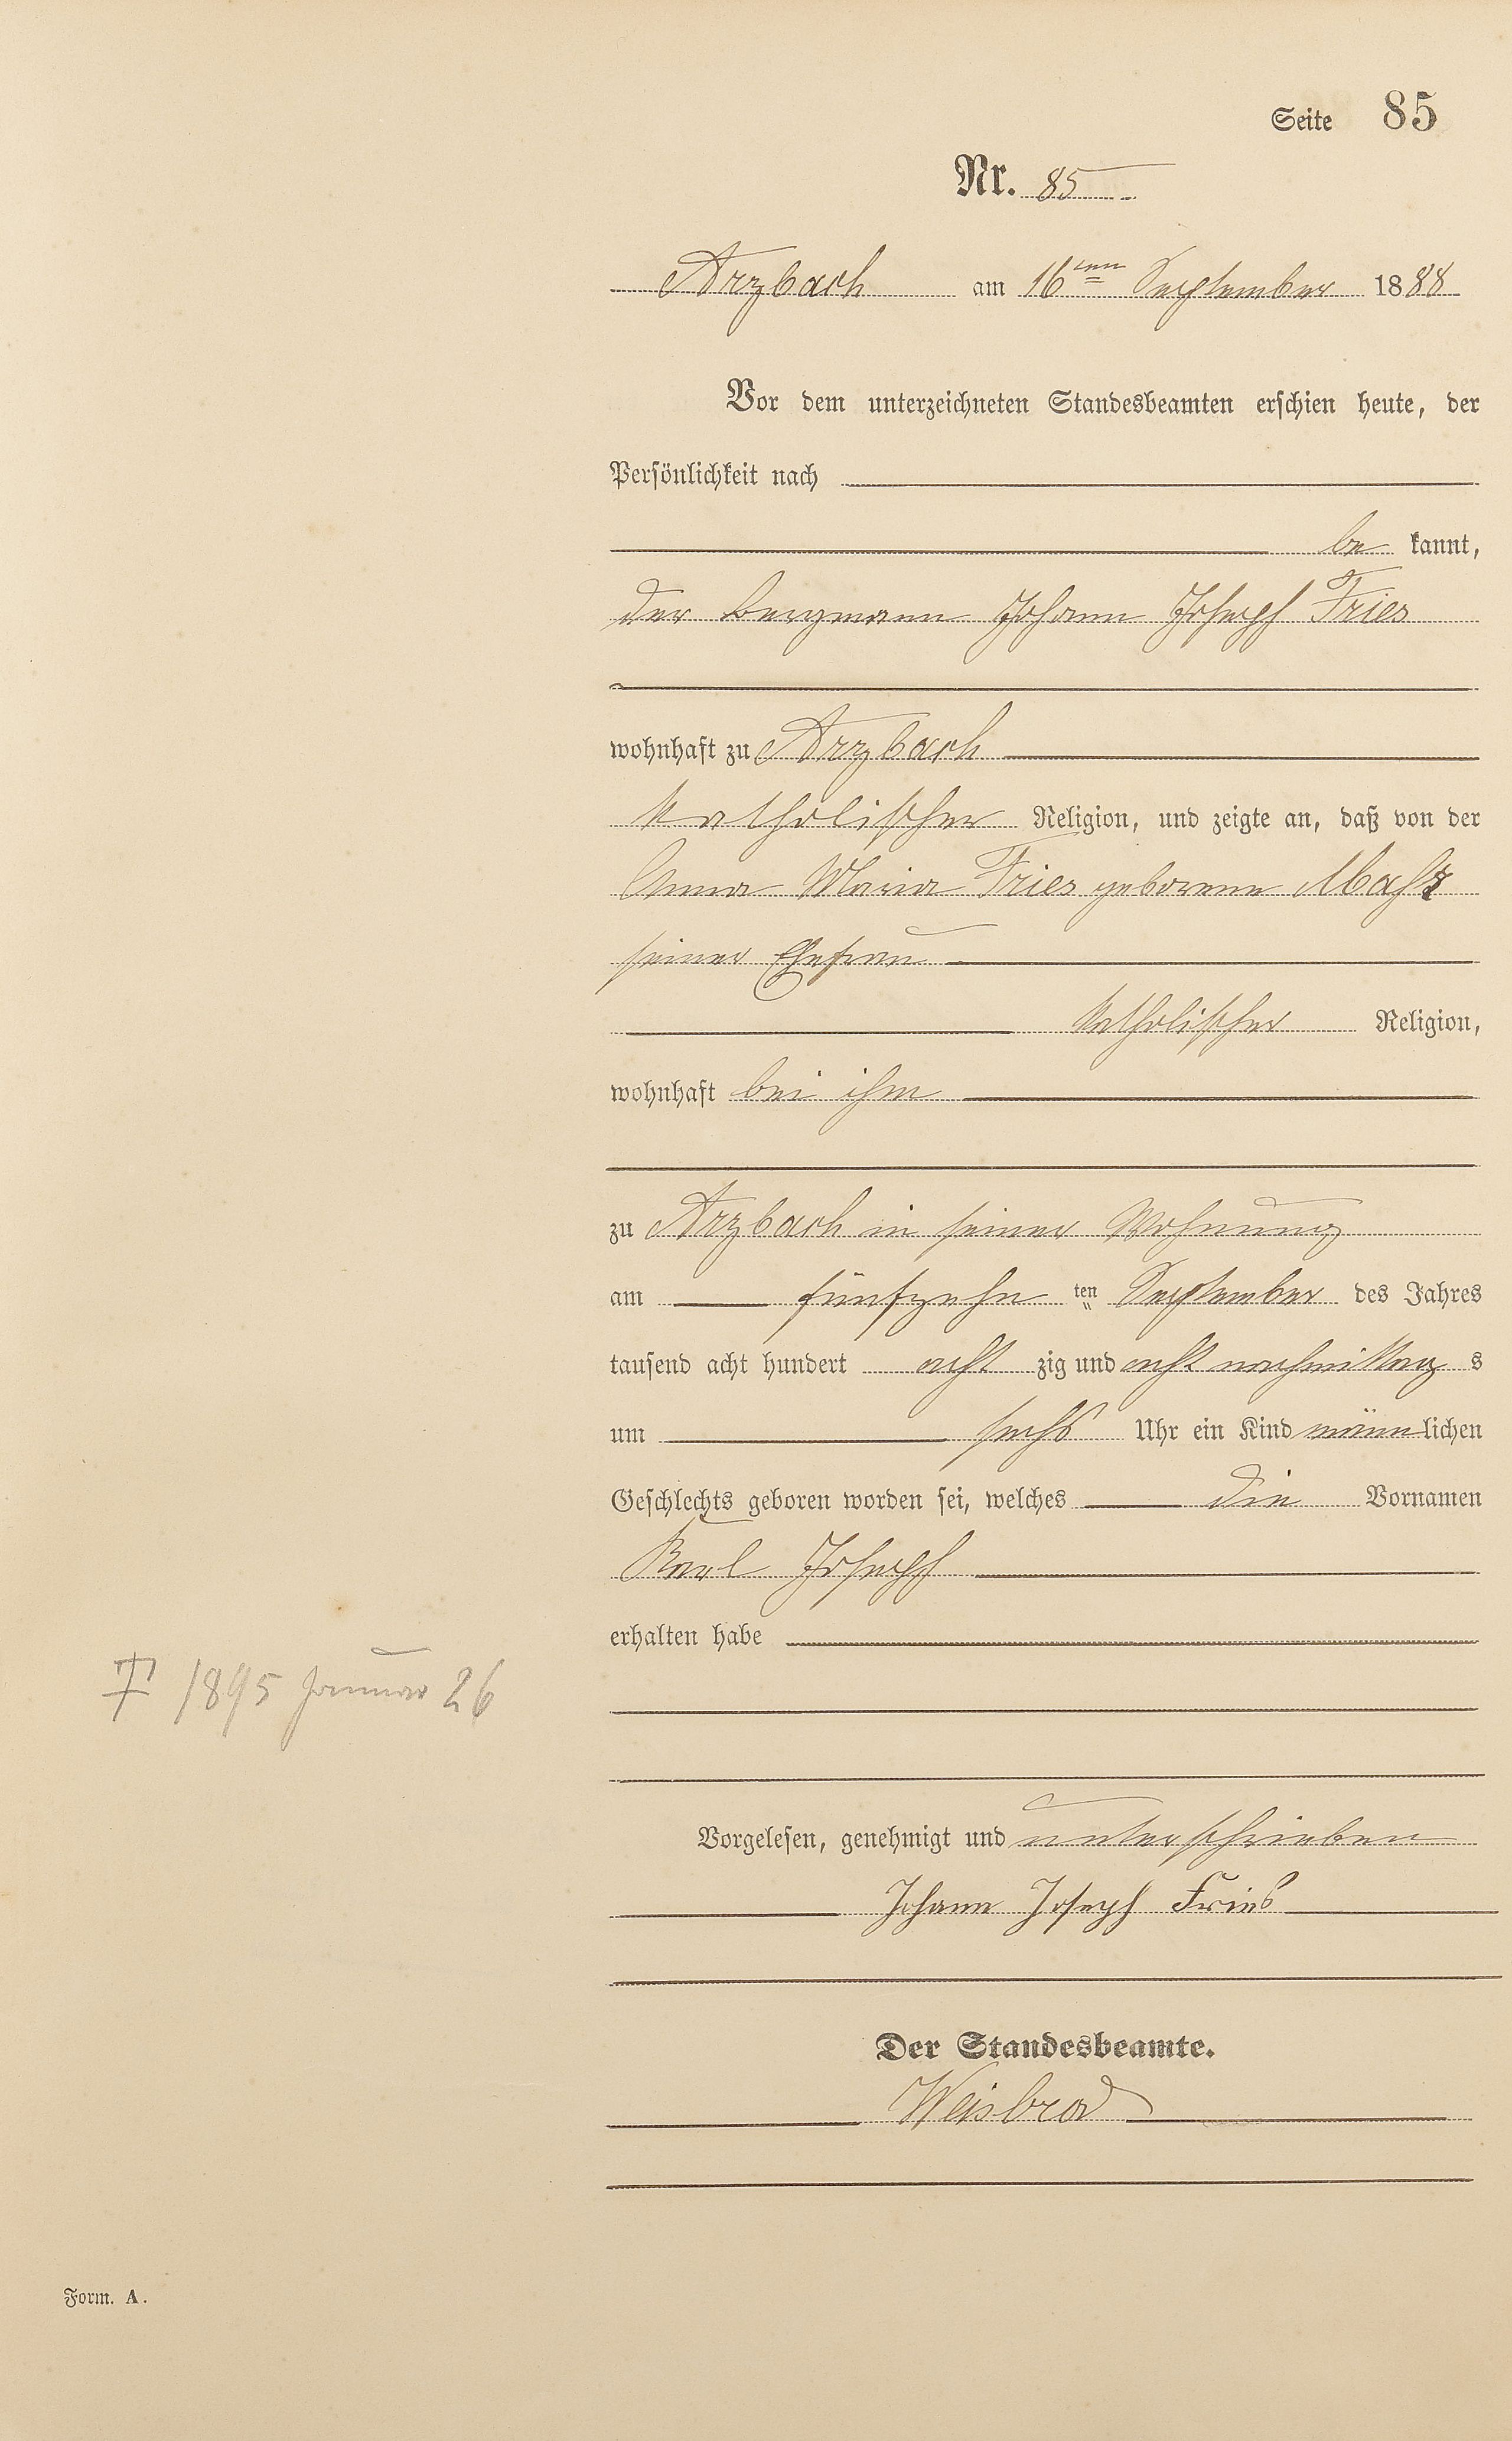 Seite 85
Nr. 85
Arzbach am 16ten September 1888
Vor dem unterzeichneten Standesbeamten erschien heute, der
Persönlichkeit nach
be kannt,
der Bergmann Johann Joseph Fries
wohnhaft zu Arzbach
katholischer Religion, und zeigte an, daß von der
Anna Maria Fries geborene
seiner Ehefrau
katholischer Religion,
wohnhaft bei ihm
zu Arzbach in seiner Wohnung
am fünfzehn ten September des Jahres
tausend acht hundert acht zig und acht nachmittag s
um sechs Uhr ein Kind männlichen
Geschlechts geboren worden sei, welches die Vornamen
Karl Joseph
erhalten habe
† 1895 Januar 26
Vorgelesen, genehmigt und unterschrieben
Johann Joseph Fries
Der Standesbeamte.
Weisbrod
Form. A.